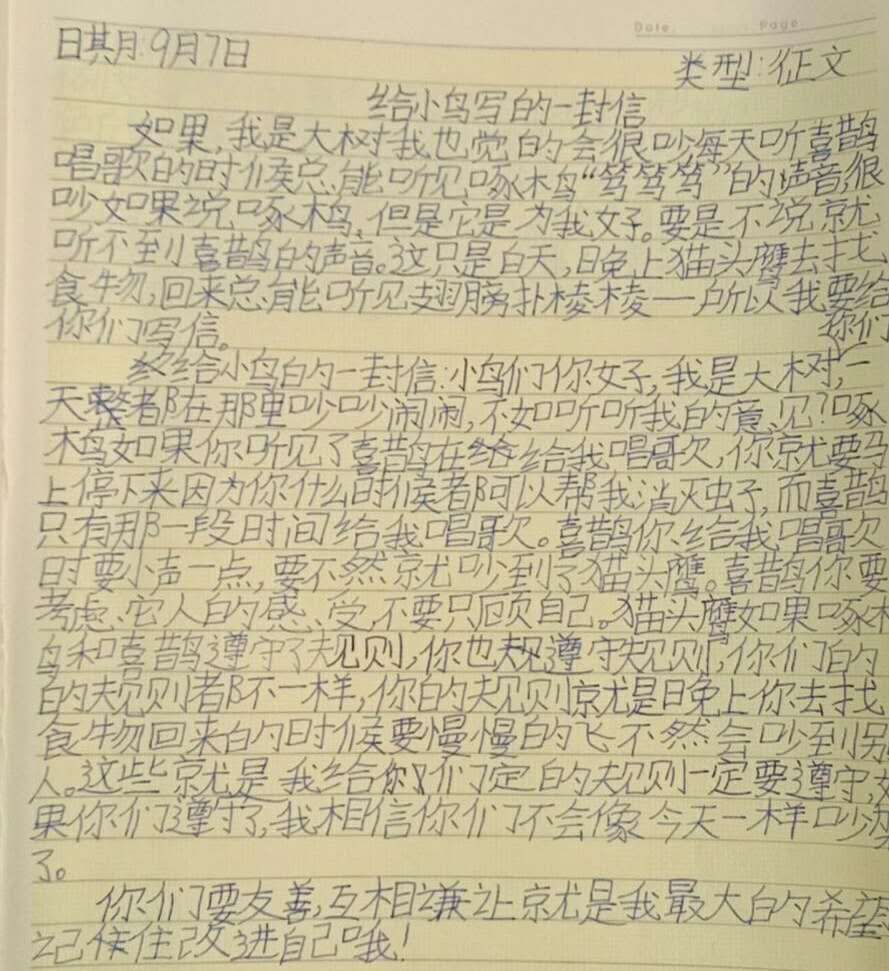 Date. Page.
日期:9月7日
类型:征文
给小鸟写的一封信
如果,我是大树我也觉的会很吵每天听喜鹊
唱歌的时候总能听见啄木鸟“笃笃笃”的声音,很
吵如果说啄木鸟,但是它是为我好。要是不说就
听不到喜鹊的声音。这只是白天,晚上猫头鹰去找
食物,回来总能听见翅膀扑棱棱——所以我要给
你们写信。
给小鸟的一封信:小鸟们你好,我是大树,一
天整都在那里吵吵闹闹,不如听听我的意见?啄
木鸟如果你听见了喜鹊在给给我唱歌,你就要马
上停下来因为你什么时候都可以帮我消灭虫子,而喜鹊
只有那一段时间给我唱歌。喜鹊你给我唱歌
时要小声一点,要不然就吵到了猫头鹰。喜鹊你要
考虑它人的感受,不要只顾自己。猫头鹰如果啄木
鸟和喜鹊遵守了规则,你也规遵守规则,你们的
的规则都不一样,你的规则就是晚上你去找
食物回来的时候要慢慢的飞不然会吵到别
人。这些就是我给你们定的规则一定要遵守,如
果你们遵守了,我相信你们不会像今天一样吵
了。
你们要友善,互相谦让就是我最大的希望
记住改进自己哦!